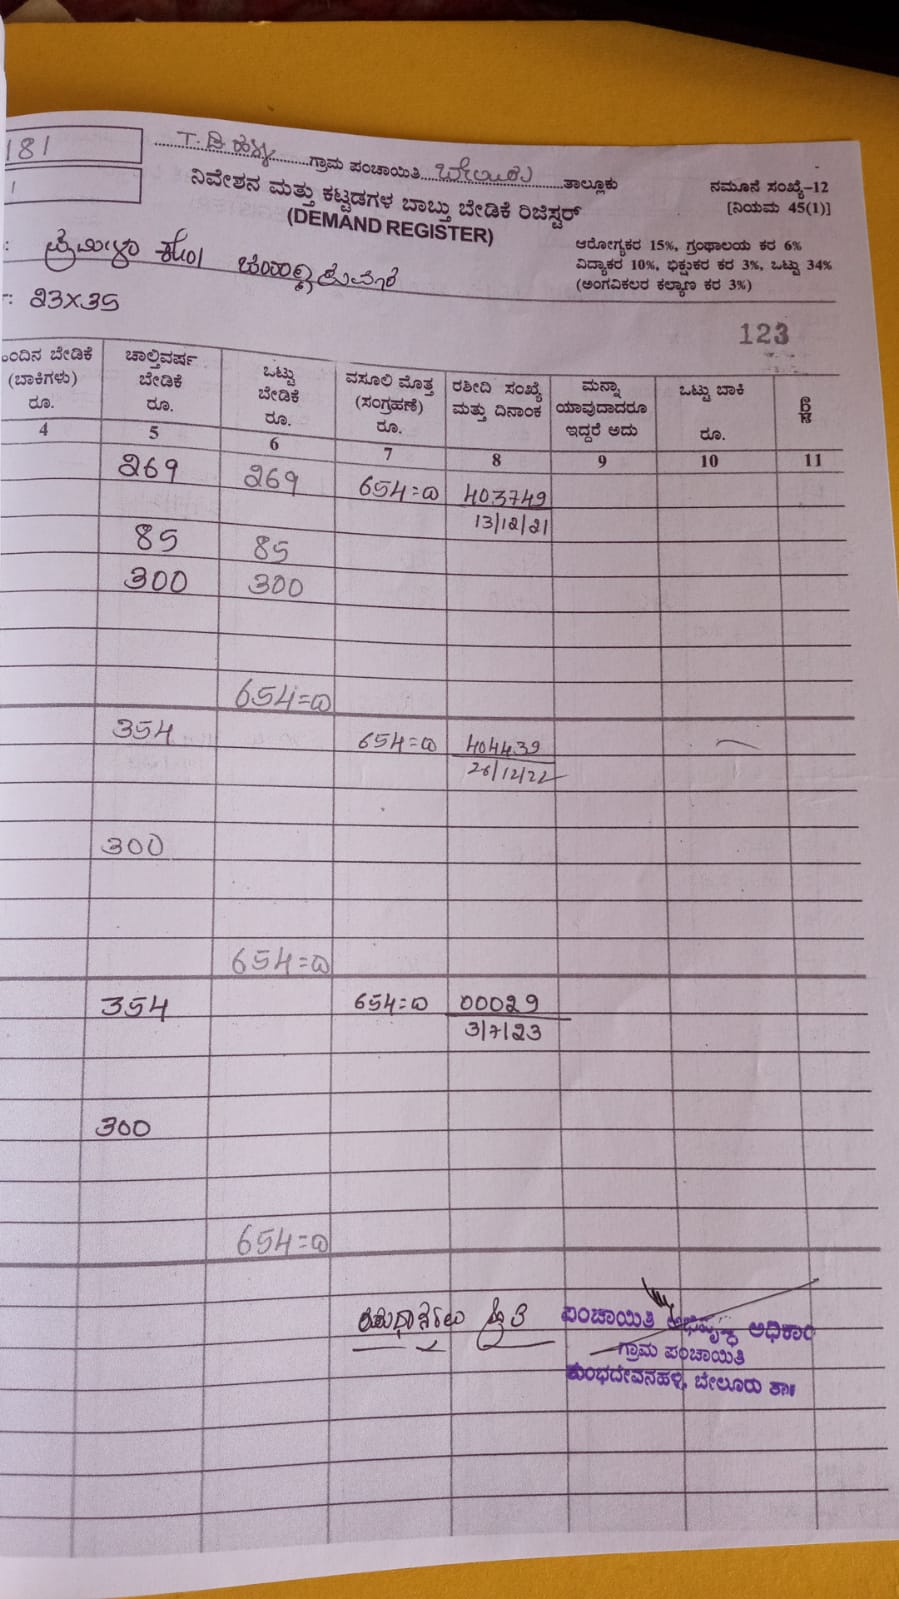 181
T. ಡಿ ಹಳ್ಳಿ ಗ್ರಾಮ ಪಂಚಾಯಿತಿ ಬೇಲೂರು ತಾಲ್ಲೂಕು
ನಮೂನೆ ಸಂಖ್ಯೆ-12
1
ನಿವೇಶನ ಮತ್ತು ಕಟ್ಟಡಗಳ ಬಾಬ್ತು ಬೇಡಿಕೆ ರಿಜಿಸ್ಟರ್
[ನಿಯಮ 45(1)]
(DEMAND REGISTER)
ಆರೋಗ್ಯಕರ 15%, ಗ್ರಂಥಾಲಯ ಕರ 6%
ವಿದ್ಯಾಕರ 10%, ಭಿಕ್ಷುಕರ ಕರ 3%, ಒಟ್ಟು 34%
(ಅಂಗವಿಕಲರ ಕಲ್ಯಾಣ ಕರ 3%)
: ಪ್ರಮೀಳಾ ಕೋಂ
: 23X35
123
ಬೇಡಿಕೆ (ಬಾಕಿಗಳು) ರೂ.
ಚಾಲ್ತಿವರ್ಷ ಬೇಡಿಕೆ ರೂ.
ಒಟ್ಟು ಬೇಡಿಕೆ ರೂ.
ವಸೂಲಿ ಮೊತ್ತ (ಸಂಗ್ರಹಣೆ) ರೂ.
ರಶೀದಿ ಸಂಖ್ಯೆ ಮತ್ತು ದಿನಾಂಕ
ಮನ್ನಾ ಯಾವುದಾದರೂ ಇದ್ದರೆ ಅದು
ಒಟ್ಟು ಬಾಕಿ ರೂ.
ಷರಾ
4 5 6 7 8 9 10 11
269 269 654=00 403749
13/12/21
85 85
300 300
654=00
354 654=00 404439
26/12/22
300
654=00
354 654=00 00029
3/7/23
300
654=00
ಪಂಚಾಯಿತಿ ಅಭಿವೃದ್ಧಿ ಅಧಿಕಾರಿ
ಗ್ರಾಮ ಪಂಚಾಯಿತಿ
ತುಂಭದೇವನಹಳ್ಳಿ, ಬೇಲೂರು ತಾ॥